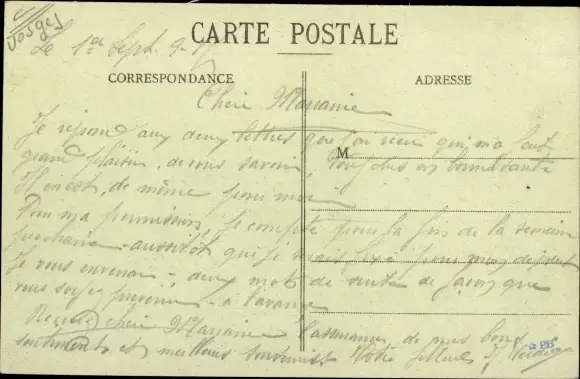 Vosges
Le 1er Sept. 9-17
CARTE POSTALE
CORRESPONDANCE
ADRESSE
Chère Marraine
Je répond aux deux lettres que j'ai reçu qui m'a fait
M
grand plaisir, de vous savoir toujours en bonne santé
Il en est de même pour moi
Pour ma permission, je compte pour la fin de la semaine
prochaine aussitôt que je serais fixé pour mon départ
Je vous enverrai deux mot de suite de façon que
vous soyez prévenue à l'avance
Recevez chère Marraine l'assurance de mes bons
sentiments et meilleurs Votre filleul
PB